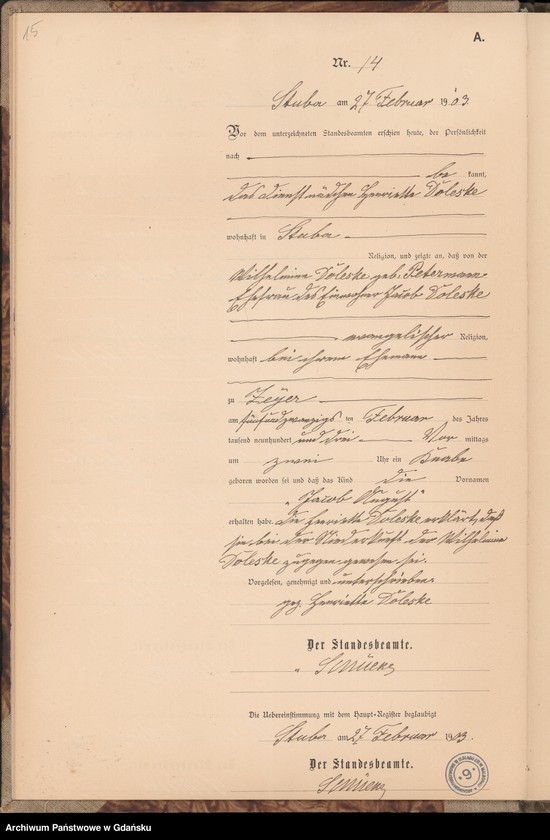 15
A.
Nr. 14
Stuba am 27 Februar 1903.
Vor dem unterzeichneten Standesbeamten erschien heute, der Persönlichkeit
nach
be kannt,
das Dienstmädchen Henriette Doleske
wohnhaft in Stuba
Religion, und zeigte an, daß von der
Wilhelmine Doleske geb. Petermann
Ehefrau des Einwohner Jacob Doleske
evangelischer Religion,
wohnhaft bei ihrem Ehemann
zu Zeyer
am fünfundzwanzigs ten Februar des Jahres
tausend neunhundert und drei Vor mittags
um zwei Uhr ein Knabe
geboren worden sei und daß das Kind die Vornamen
"Jacob August"
erhalten habe. Die Henriette Doleske erklärt, daß
sie bei der Niederkunft der Wilhelmine
Doleske zugegen gewesen sei.
Vorgelesen, genehmigt und unterschrieben
gez. Henriette Doleske
Der Standesbeamte.
"
Die Uebereinstimmung mit dem Haupt-Register beglaubigt
Stuba am 27 Februar 1903.
Der Standesbeamte.
9
Archiwum Państwowe w Gdańsku